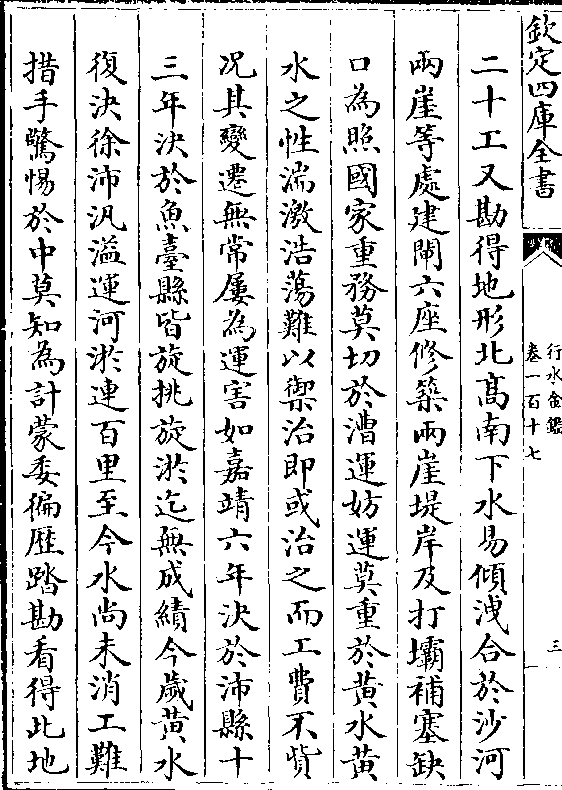 欽定四庫全書
行水金鑑
卷一百十七
三
二十工又勘得地形北髙南下水易傾洩合於沙河
兩崖等處建閘六座修築兩崖堤岸及打壩補塞缺
口為照國家重務莫切於漕運妨運莫重於黄水黄
水之性湍激浩蕩難以禦治即或治之而工費不貲
况其變遷無常屢為運害如嘉靖六年決於沛縣十
三年決於魚臺縣皆旋挑旋淤迄無成績今歲黄水
復決徐沛汎溢運河淤連百里至今水尚未消工難
措手驚惕於中莫知為計蒙委徧歴踏勘看得此地